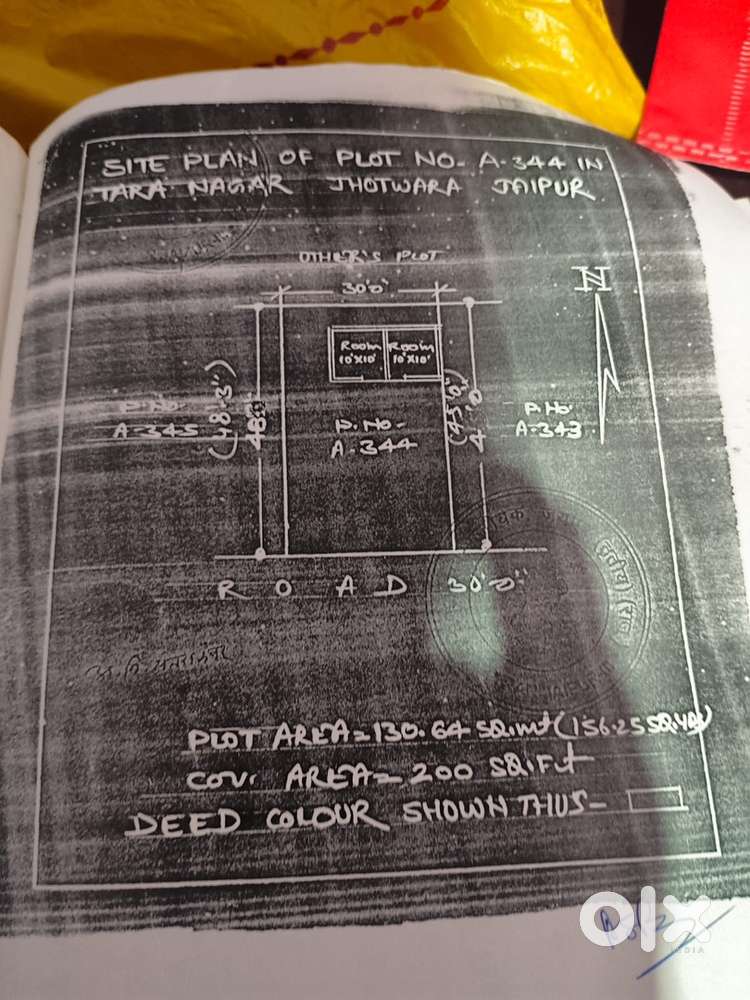 SITE PLAN OF PLOT NO- A-344 IN
TARA NAGAR JHOTWARA JAIPUR
OTHER'S PLOT
30'0"
N
Room Room
10'X10' 10'X10'
(48'-3")
(45'0")
P.No. A-345
P.No- A-344
P.No. A-343
ROAD 30'0"
PLOT AREA=130.64 SQ.mt (156.25 SQ.yds)
COV. AREA= 200 SQ.Ft
DEED COLOUR SHOWN THUS-
olx
INDIA